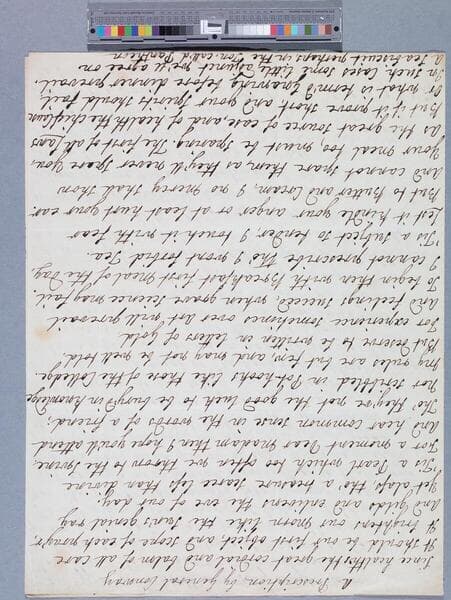 A Prescription by General Conway
Since health's the great cordial and balm of all care
It should be our first object, and scope of each pray'r
It brightens our morn like the Sun's genial ray
and gilds and enlivens the eve of our day;
Yet alas, tho' a treasure scarce less than divine
'Tis a Pearl which too often we throw to the Swine
For a moment Dear Madam then I hope you'll attend
and hear common sense in the words of a friend;
Tho' they've not the good luck to be bury'd in knowledge
nor scribbled in Pothooks like those of the Colledge
My rules are but few and may not be well told.
But deserve to be written in letters of gold.
For experience sometimes over art will prevail
and feelings succeed, when grave science may fail
To begin then with Breakfast first meal of the Day,
I cannot prescribe tho' I wont forbid Tea.
'Tis a subject so tender I touch it with fear
Lest it kindle your anger or at least hurt your ear.
But to Butter and Cream I no mercy shall show
and cannot spare them as they'd never spare you
Your meal too must be sparing the first of all laws
as the great source of ease and of health the chief
But if it prove short and your spirits should fail
Or what is term'd Craving before dinner prevail,
In such cases some little adjunct we'll agree on
a Tea-biscuit perhaps in the call'd Pantheon